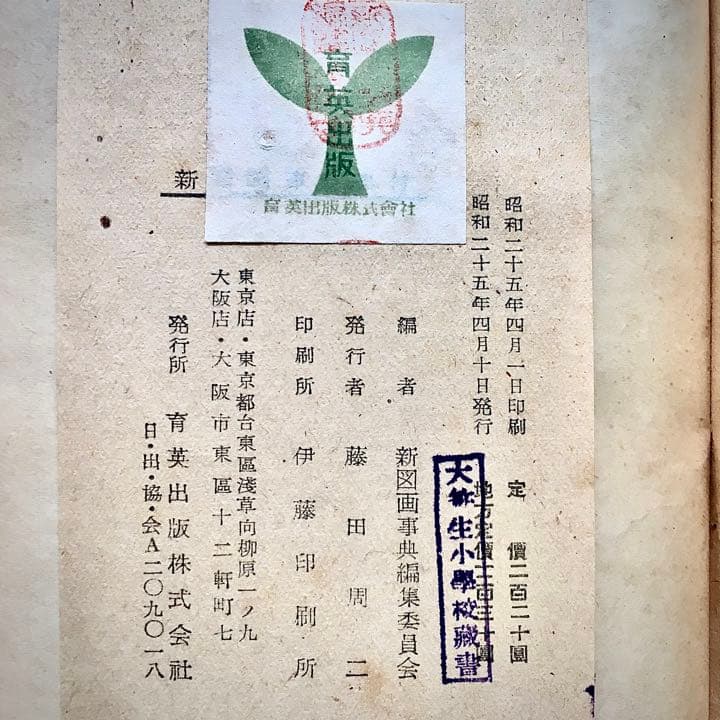 育英出版
育英出版株式會社
昭和二十五年四月一日印刷 定 價二百二十圓
昭和二十五年四月十日発行 地方定價二百三十圓
編者 新図画事典編集委員会
発行者 藤田周二
印刷所 伊藤印刷所
東京店・東京都台東區淺草向柳原一ノ九
大阪店・大阪市東區十二軒町七
発行所 育英出版株式会社
日・出・協・会A二〇九〇一八
新
生小學校藏書